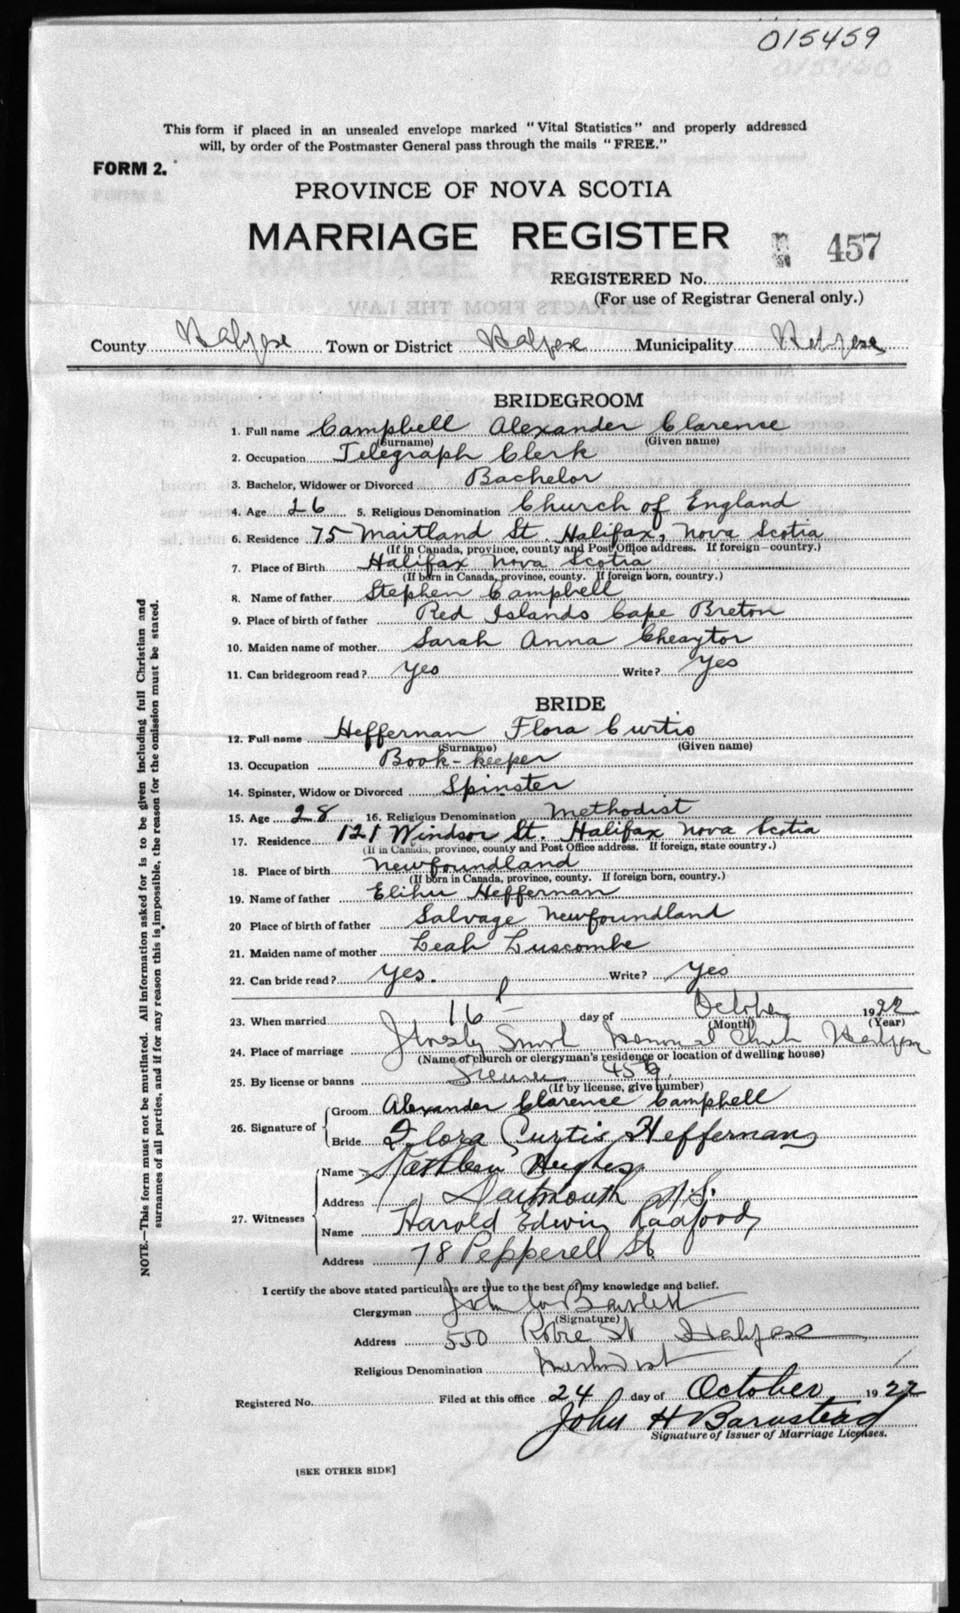 015459
This form if placed in an unsealed envelope marked "Vital Statistics" and properly addressed
will, by order of the Postmaster General pass through the mails "FREE."
FORM 2.
PROVINCE OF NOVA SCOTIA
MARRIAGE REGISTER
457
REGISTERED No.
(For use of Registrar General only.)
County Halifax Town or District Halifax Municipality Halifax
BRIDEGROOM
1. Full name Campbell Alexander Clarence
(Surname) (Given name)
2. Occupation Telegraph Clerk
3. Bachelor, Widower or Divorced Bachelor
4. Age 26 5. Religious Denomination Church of England
6. Residence 75 Maitland St. Halifax, Nova Scotia
(If in Canada, province, county and Post Office address. If foreign—country.)
7. Place of Birth Halifax Nova Scotia
(If born in Canada, province, county. If foreign born, country.)
8. Name of father Stephen Campbell
9. Place of birth of father Red Islands Cape Breton
10. Maiden name of mother Sarah Anna Cheaytor
11. Can bridegroom read? Yes Write? Yes
BRIDE
12. Full name Heffernan Flora Curtis
(Surname) (Given name)
13. Occupation Book-keeper
14. Spinster, Widow or Divorced Spinster
15. Age 28 16. Religious Denomination Methodist
17. Residence 121 Windsor St. Halifax Nova Scotia
(If in Canada, province, county and Post Office address. If foreign, state country.)
18. Place of birth Newfoundland
(If born in Canada, province, county. If foreign born, country.)
19. Name of father Elihu Heffernan
20 Place of birth of father Salvage Newfoundland
21. Maiden name of mother Leah Luscombe
22. Can bride read? Yes. Write? Yes
23. When married 16 day of October 1922
(Month) (Year)
24. Place of marriage J Wesley Smith Memorial Church Halifax
(Name of church or clergyman's residence or location of dwelling house)
25. By license or banns License
(If by license, give number)
26. Signature of Groom Alexander Clarence Campbell
Bride Flora Curtis Heffernan
27. Witnesses Name Kathleen Hughes
Address Dartmouth N.S.
Name Harold Edwin Radford
Address 78 Pepperell St.
I certify the above stated particulars are true to the best of my knowledge and belief.
Clergyman John W Bartlett
(Signature)
Address 550 Robie St Halifax
Religious Denomination Methodist
Registered No. Filed at this office 24 day of October 1922
John H Barnstead
Signature of Issuer of Marriage Licenses.
[SEE OTHER SIDE]
NOTE.—This form must not be mutilated. All information asked for is to be given including full Christian and
surnames of all parties, and if for any reason this is impossible, the reason for the omission must be stated.